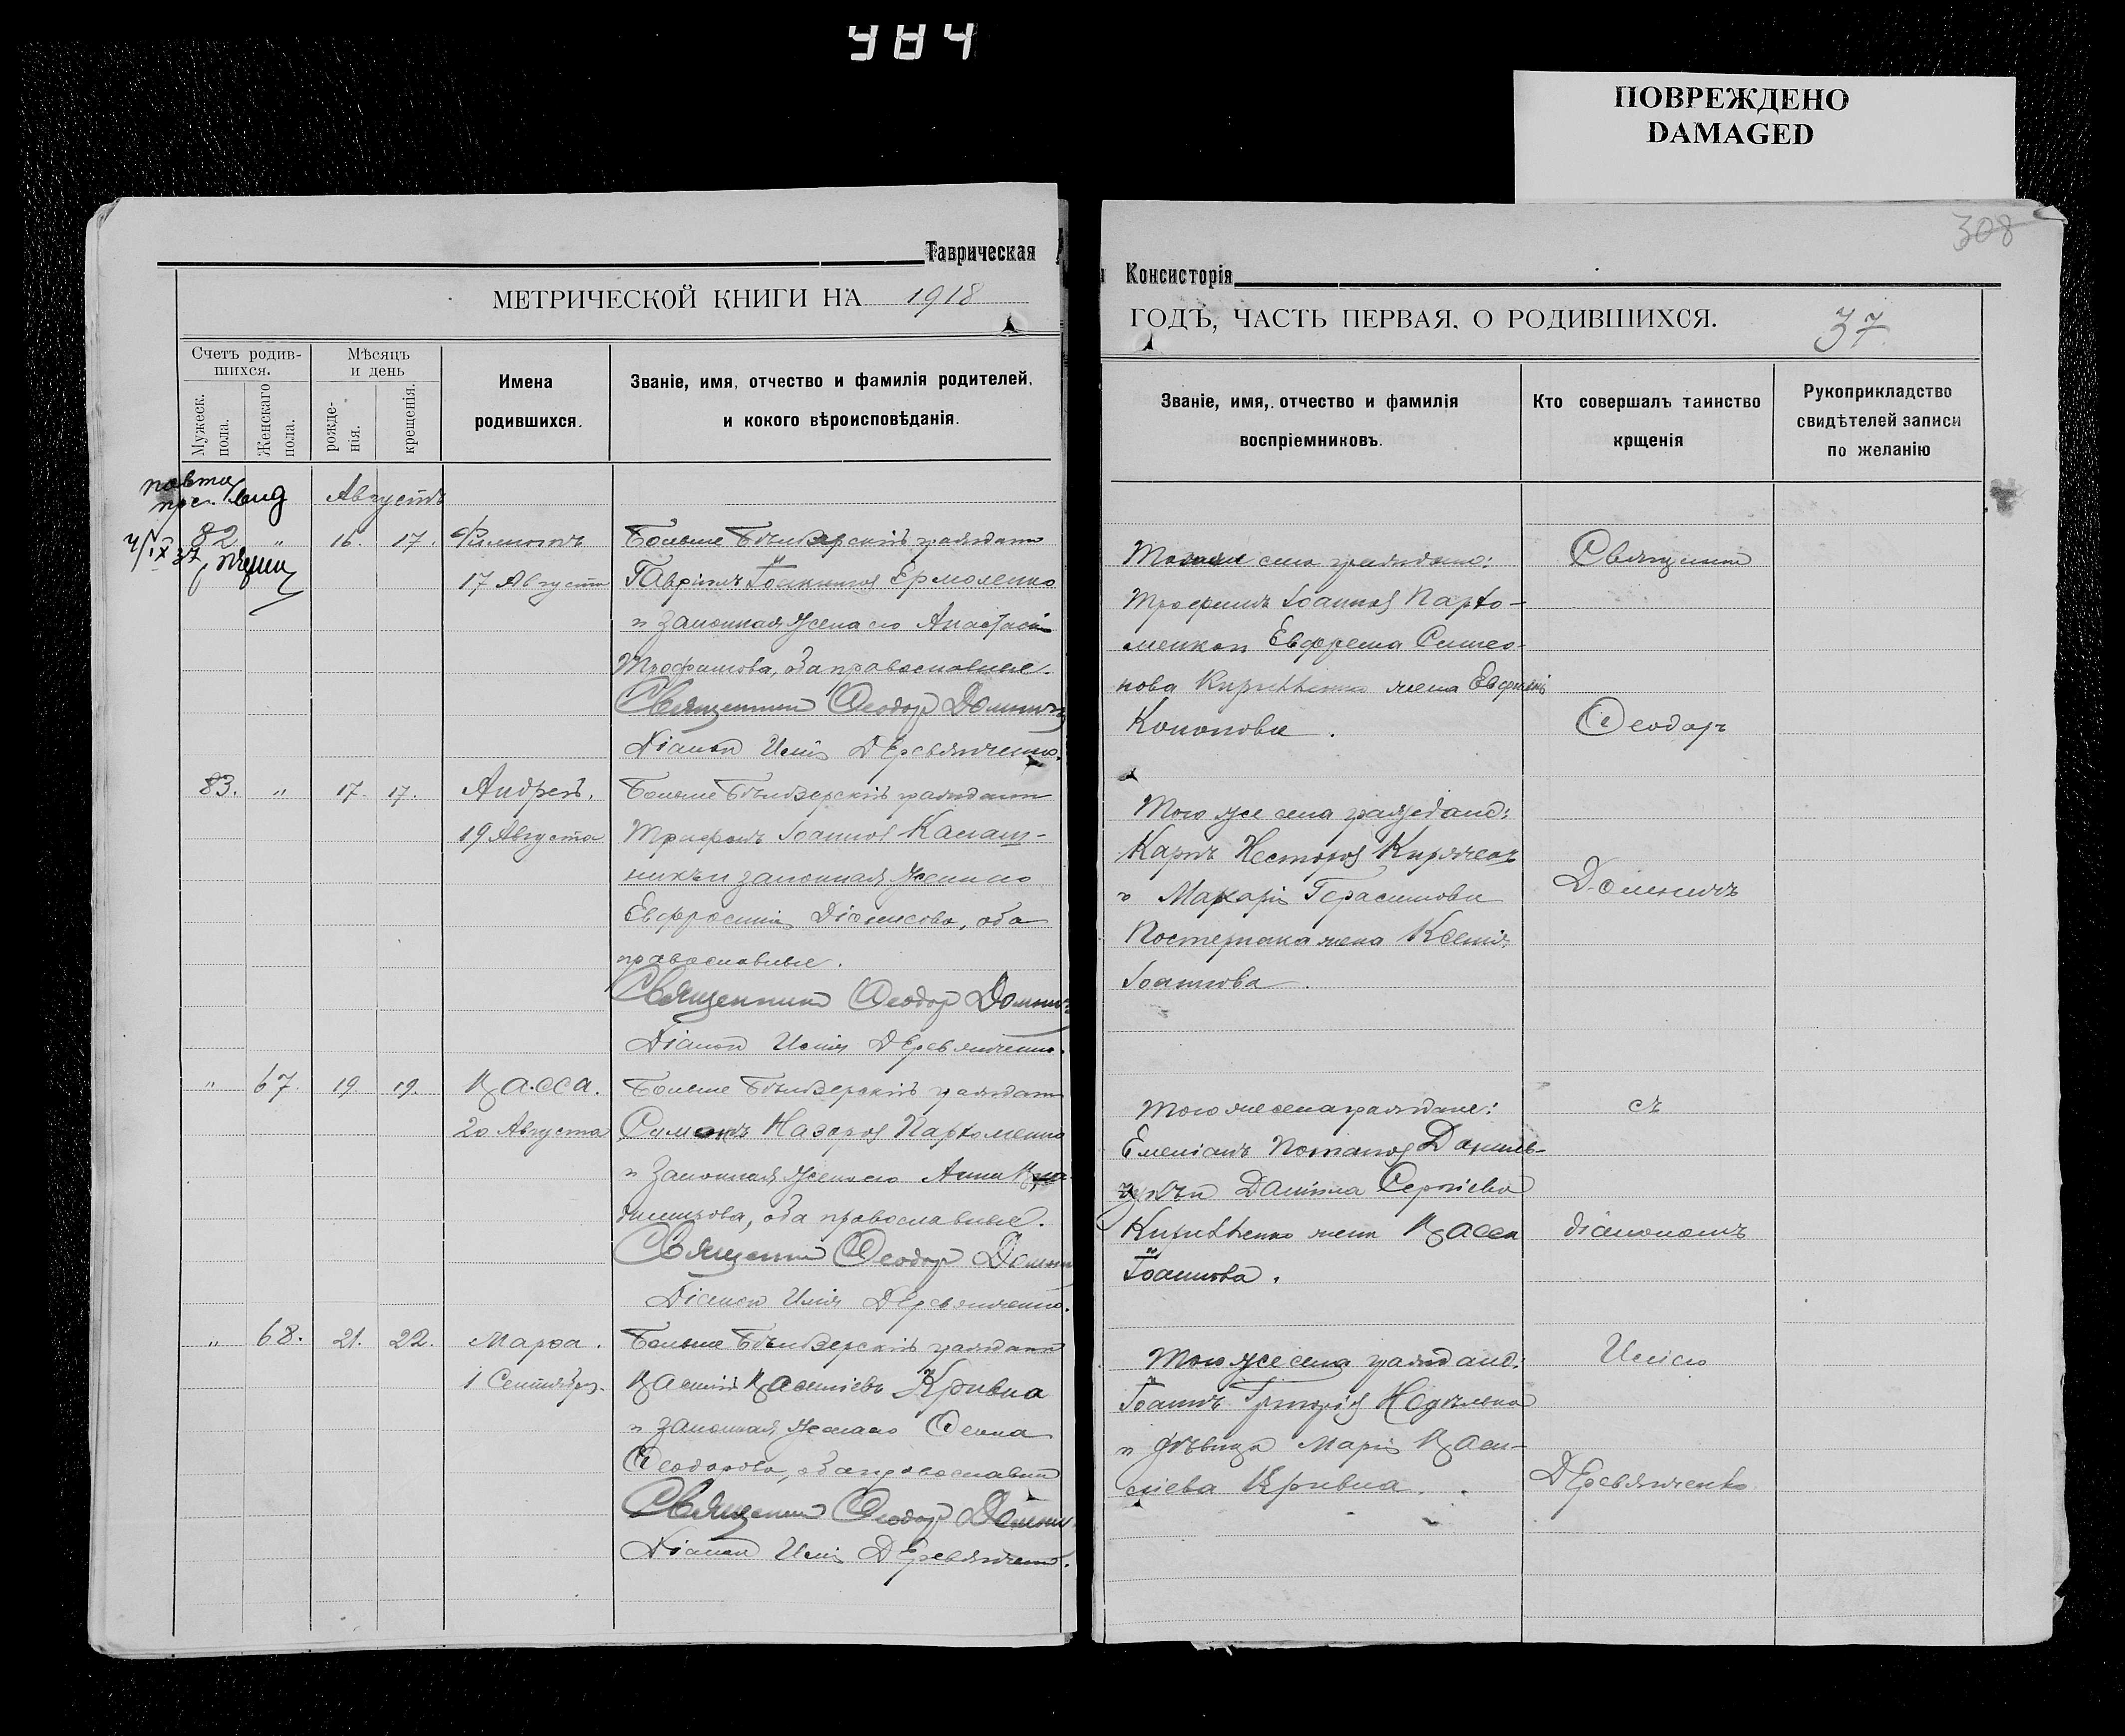 484
ПОВРЕЖДЕНО
DAMAGED
308
Таврическая
Консисторія
МЕТРИЧЕСКОЙ КНИГИ НА 1918
ГОДЪ, ЧАСТЬ ПЕРВАЯ, О РОДИВШИХСЯ.
37
Счетъ родив-
шихся.
Мужеск.
пола.
Женскаго
пола.
Мѣсяцъ
и день
рожде-
нія.
крещенія.
Имена
родившихся.
Званіе, имя, отчество и фамилія родителей,
и кокого вѣроисповѣданія.
Званіе, имя, отчество и фамилія
воспріемниковъ.
Кто совершалъ таинство
крщенія
Рукоприкладство
свидѣтелей записи
по желанію
Августъ
82. " 16. 17. Филимонъ
17 Августа
Больше Бѣлозерскій гражданинъ
Гавріилъ Іоанновъ Ермоленко
и законная жена его Анастасія
Трофимова, оба православные.
Священникъ Ѳеодоръ Домничъ
Діаконъ Илія Деревянченко.
села граждане:
Трофимъ Іоанновъ Пархо-
менко и Евфрема Симео-
нова Кириченко жена Евфимія
Кононова.
83. " 17. 17. Андрей.
19 Августа
Больше Бѣлозерскій гражданинъ
Трифонъ Іоанновъ Калаш-
никъ и законная жена его
Евфросинія Діонисова, оба
православные.
Священникъ Ѳеодоръ Домничъ
Діаконъ Илія Деревянченко.
Того же села граждане:
Карпъ Несторовъ
и Макарія Герасимова
Постернака жена Ксенія
Іоаннова.
" 67. 19. 19. Васса.
20 Августа
Больше Бѣлозерскій гражданинъ
Симонъ Назаровъ Пархоменко
и законная жена его Анна
оба православные.
Священникъ Ѳеодоръ Домничъ
Діаконъ Илія Деревянченко.
Того же села граждане:
Емеліанъ Потаповъ
Даніила Сергіева
Кириченко жена Васса
Іоаннова.
" 68. 21. 22. Марѳа.
1 Сентября.
Больше Бѣлозерскій гражданинъ
Василій Василіевъ Кривка
и законная жена его Ѳекла
Ѳеодорова, оба православные
Священникъ Ѳеодоръ Домничъ
Діаконъ Илія Деревянченко.
Того же села граждане:
Іоаннъ Григорій Недѣлько
и дѣвица Марія Васи-
ліева Кривка.
Священникъ
Ѳеодоръ
Домничъ
съ
діакономъ
Иліею
Деревянченко